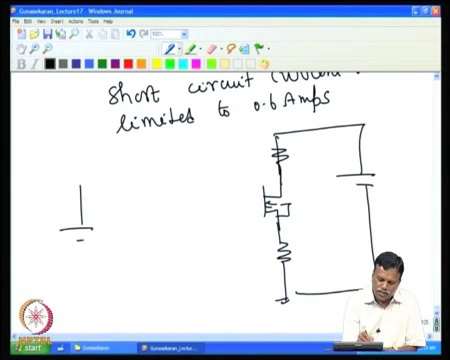 Gunasekaran_Lecture17 - Windows Journal
File Edit View Insert Actions Tools Help
100%
B I
short circuit
limited to 0.6 Amps
NPTEL
start
Gunasekaran
Gunasekaran_Lectu...